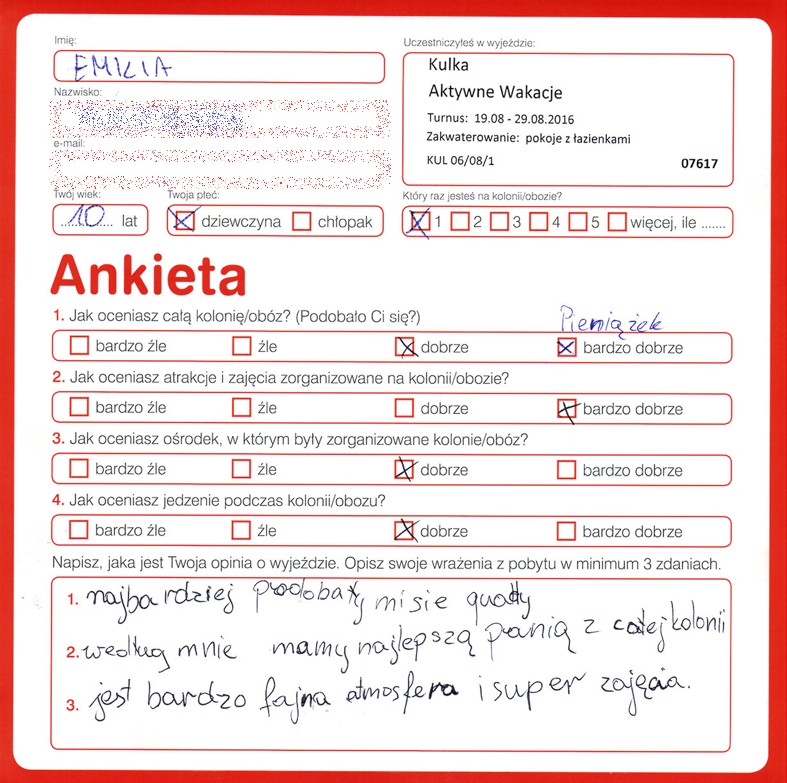 Imię:
EMILIA
Nazwisko:
e-mail:
Twój wiek:
10 lat
Twoja płeć:
dziewczyna chłopak
Uczestniczyłeś w wyjeździe:
Kulka
Aktywne Wakacje
Turnus: 19.08 - 29.08.2016
Zakwaterowanie: pokoje z łazienkami
KUL 06/08/1 07617
Który raz jesteś na kolonii/obozie?
1 2 3 4 5 więcej, ile .......
Ankieta
1. Jak oceniasz całą kolonię/obóz? (Podobało Ci się?)
Pieniążek
bardzo źle źle dobrze bardzo dobrze
2. Jak oceniasz atrakcje i zajęcia zorganizowane na kolonii/obozie?
bardzo źle źle dobrze bardzo dobrze
3. Jak oceniasz ośrodek, w którym były zorganizowane kolonie/obóz?
bardzo źle źle dobrze bardzo dobrze
4. Jak oceniasz jedzenie podczas kolonii/obozu?
bardzo źle źle dobrze bardzo dobrze
Napisz, jaka jest Twoja opinia o wyjeździe. Opisz swoje wrażenia z pobytu w minimum 3 zdaniach.
1. najbardziej podobały mi sie quady
2. według mnie mamy najlepszą panią z całej kolonii
3. jest bardzo fajna atmosfera i super zajęcia.